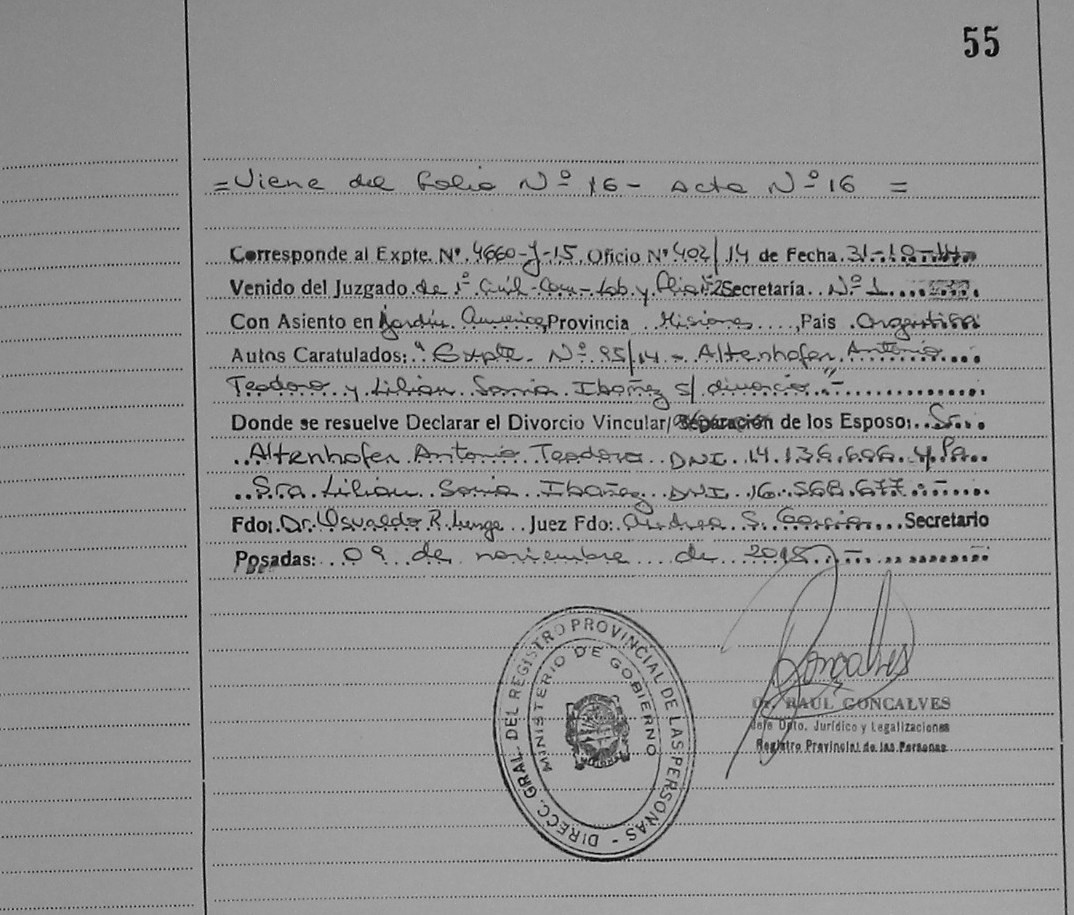 55
=Viene del Folio Nº 16- Acta Nº 16 =
Corresponde al Expte. Nº 4660-J-15. Oficio Nº 402/14 de Fecha 31-10-14
Venido del Juzgado de 1º Civil-Com-Lab. y Flia Nº2 Secretaría Nº 1
Con Asiento en Jardín América, Provincia Misiones, País Argentina
Autos Caratulados: "Expte. Nº 95/14 - Altenhofer Antonio
Teodoro y Lilian Sonia Ibañez s/ divorcio".-
Donde se resuelve Declarar el Divorcio Vincular/Separación de los Esposo: Sr.
Altenhofer Antonio Teodoro DNI 14.136.606 y la
Sra. Lilian Sonia Ibañez DNI 16.568.677.-
Fdo: Dr. Osvaldo R. Lunge Juez Fdo: Andrea S. García Secretario
Posadas: 09 de noviembre de 2015.-
Gonçalves
Dr. RAUL GONCALVES
Jefe Dpto. Jurídico y Legalizaciones
Registro Provincial de las Personas
DIRECC. GRAL. DEL REGISTRO PROVINCIAL DE LAS PERSONAS -
MINISTERIO DE GOBIERNO